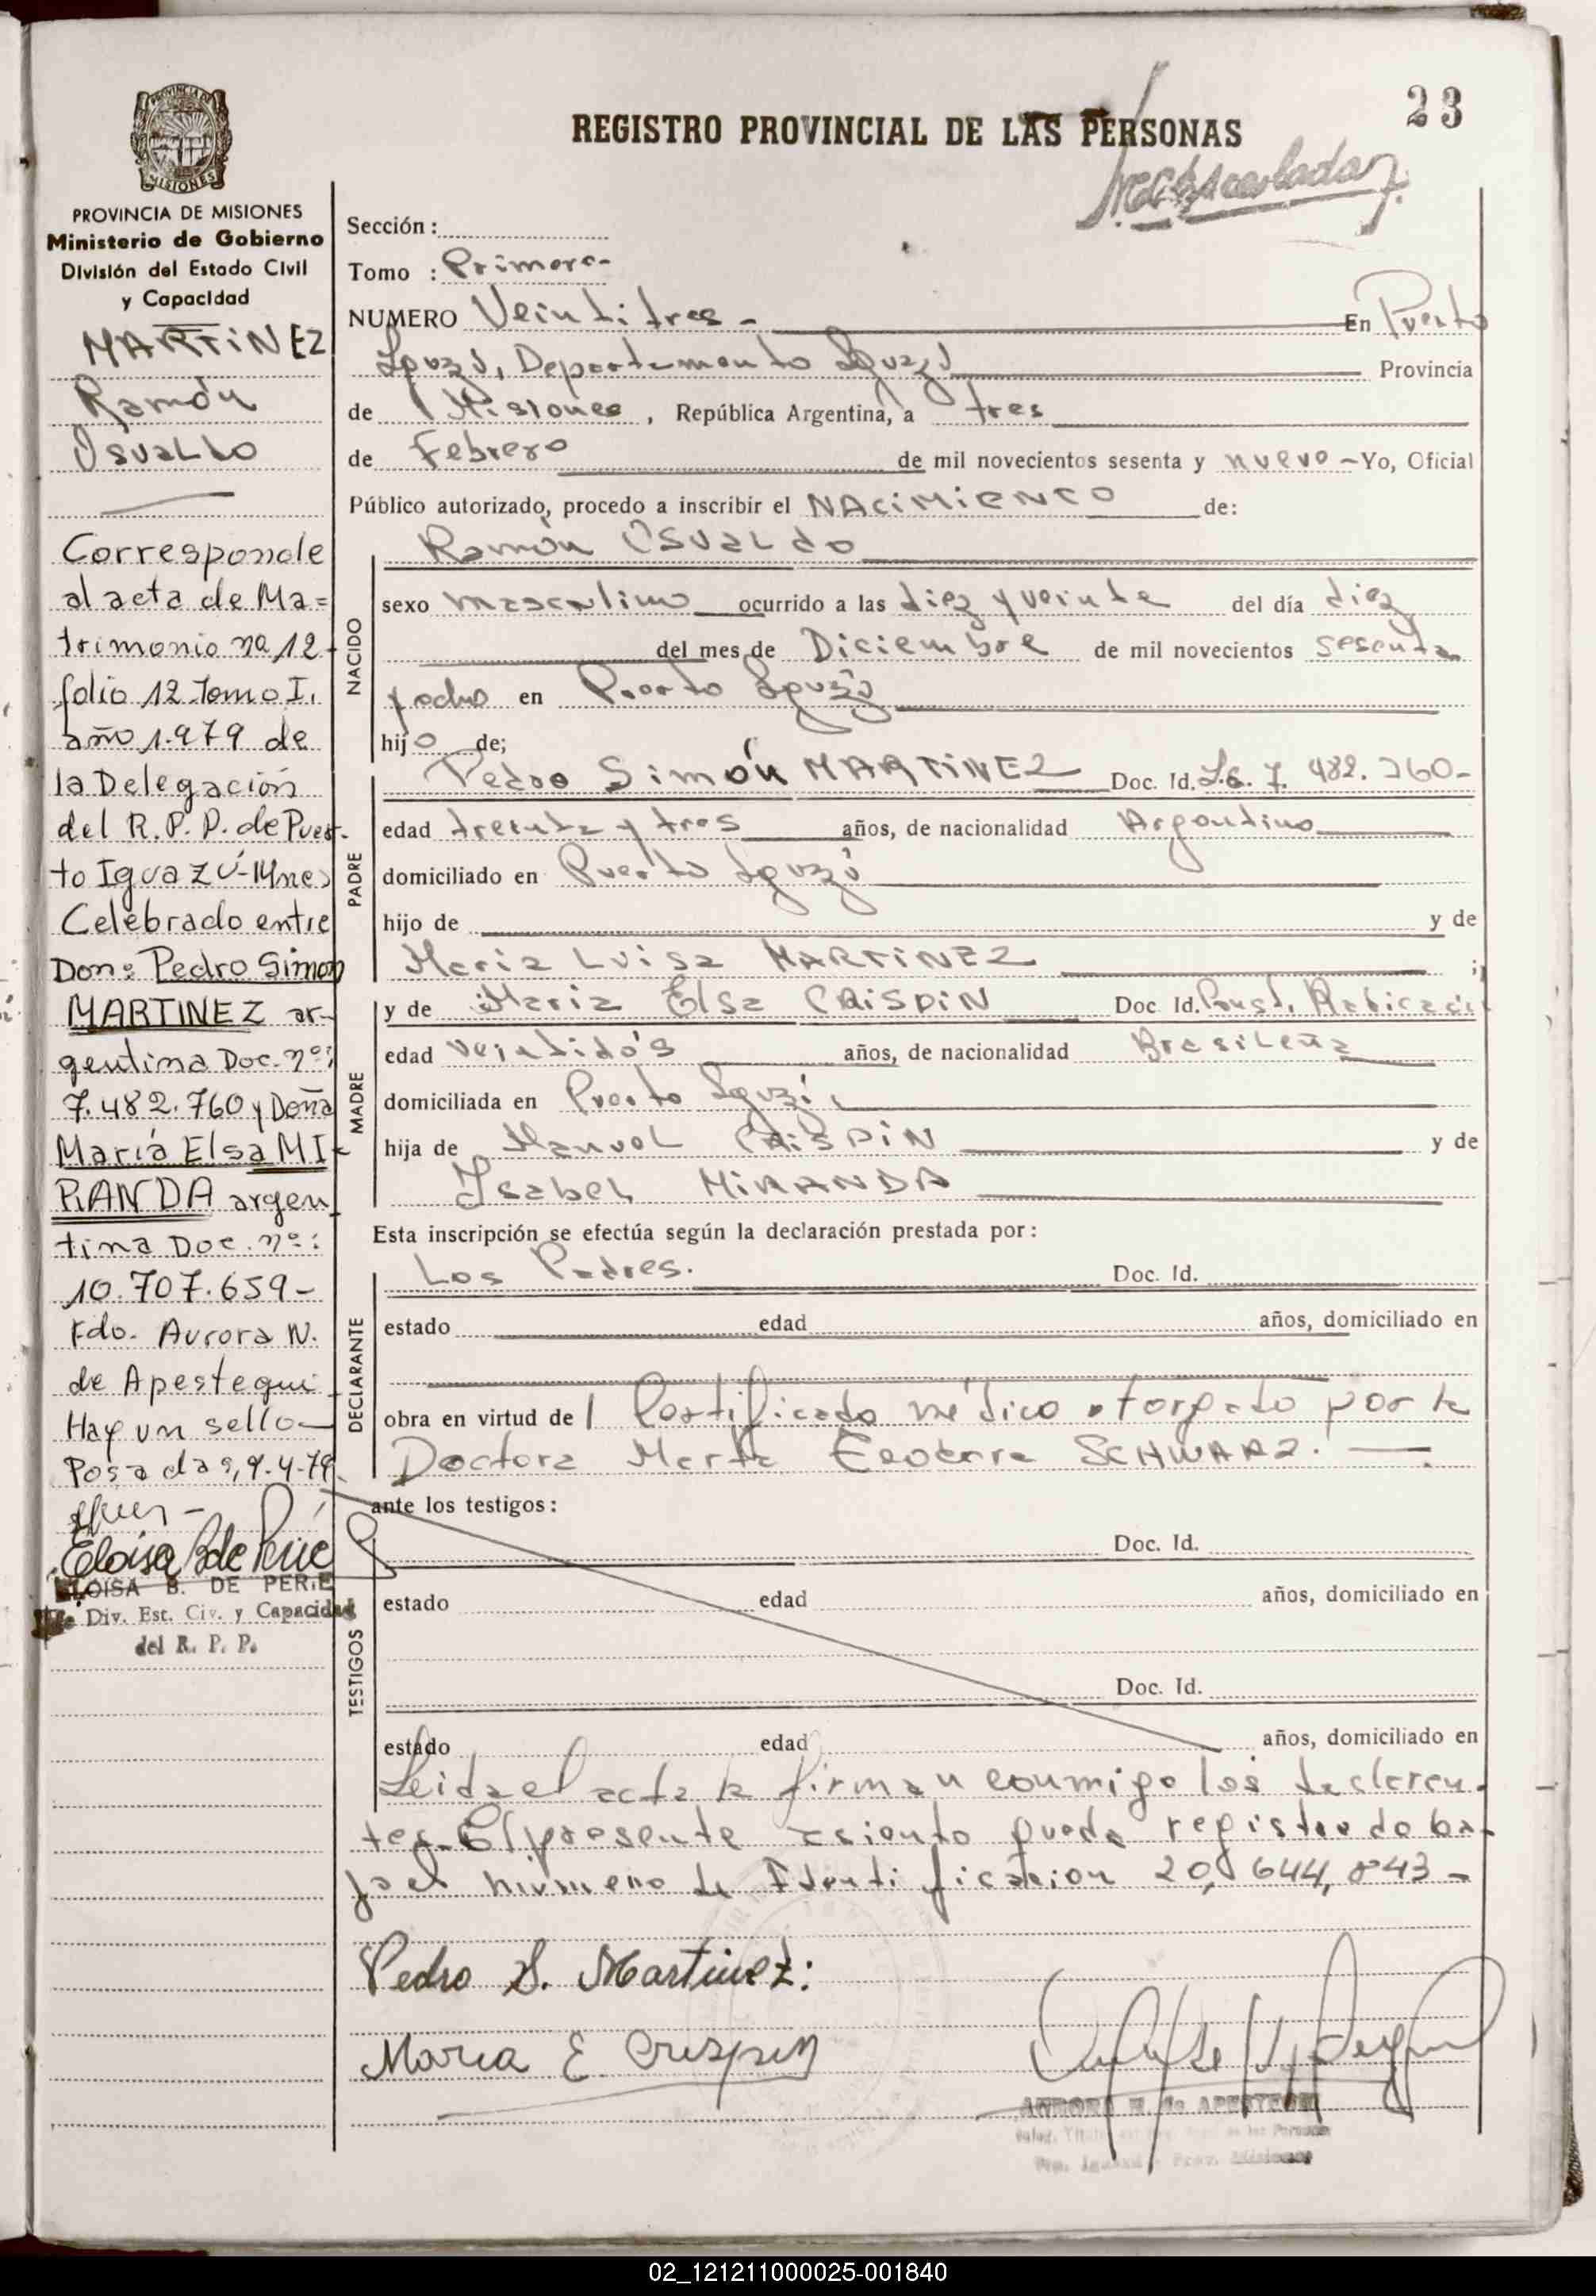 23
REGISTRO PROVINCIAL DE LAS PERSONAS
PROVINCIA DE
MISIONES
PROVINCIA DE MISIONES
Ministerio de Gobierno
División del Estado Civil
y Capacidad
MARTINEZ
Ramón
Osvaldo
Corresponde
al acta de Ma=
trimonio nº 12
folio 12 Tomo I.
año 1.979 de
la Delegación
del R. P. P. de Puer-
to Iguazú-Mnes
Celebrado entre
Don: Pedro Simon
MARTINEZ ar-
gentina Doc. nº:
7.482.760 y Doña
María Elsa MI-
RANDA argen
tina Doc. nº:
10.707.659-
Fdo. Aurora N.
de Apestegui
Hay un sello-
Posadas, 9.4.79.
Eloisa B de Perie
ELOISA B. DE PERIE
Div. Est. Civ. y Capacidad
del R. P. P.
Sección:
Tomo : Primero-
NUMERO Veintitres - En Puerto
Iguazú, Departamento Iguazú Provincia
de Misiones, República Argentina, a tres
de Febrero de mil novecientos sesenta y nueve - Yo, Oficial
Público autorizado, procedo a inscribir el NACIMIENTO de:
Ramón Osvaldo
NACIDO
sexo masculino ocurrido a las diez y veinte del día diez
del mes de Diciembre de mil novecientos sesenta
y ocho en Puerto Iguazú
hijo de;
Pedro Simón MARTINEZ Doc. Id. 7. 482. 760-
PADRE
edad treinta y tres años, de nacionalidad Argentino
domiciliado en Puerto Iguazú
hijo de y de
Maria Luisa MARTINEZ ;
MADRE
y de Maria Elsa CRISPIN Doc. Id.
edad veintidós años, de nacionalidad Brasileña
domiciliada en Puerto Iguazú
hija de Manuel CRISPIN y de
Isabel MIRANDA
Esta inscripción se efectúa según la declaración prestada por:
DECLARANTE
Los Padres. Doc. Id.
estado edad años, domiciliado en
obra en virtud de Certificado médico otorgado por la
Doctora Marta SCHWARZ.
ante los testigos:
TESTIGOS
Doc. Id.
estado edad años, domiciliado en
Doc. Id.
estado edad años, domiciliado en
Leida el acta la firman conmigo los declaran-
tes. El presente asiento queda registrado ba-
jo el número de Identificación 20,644,843-
Pedro S. Martinez:
Maria E Crispin
AURORA N. de APESTEGUI
02_121211000025-001840